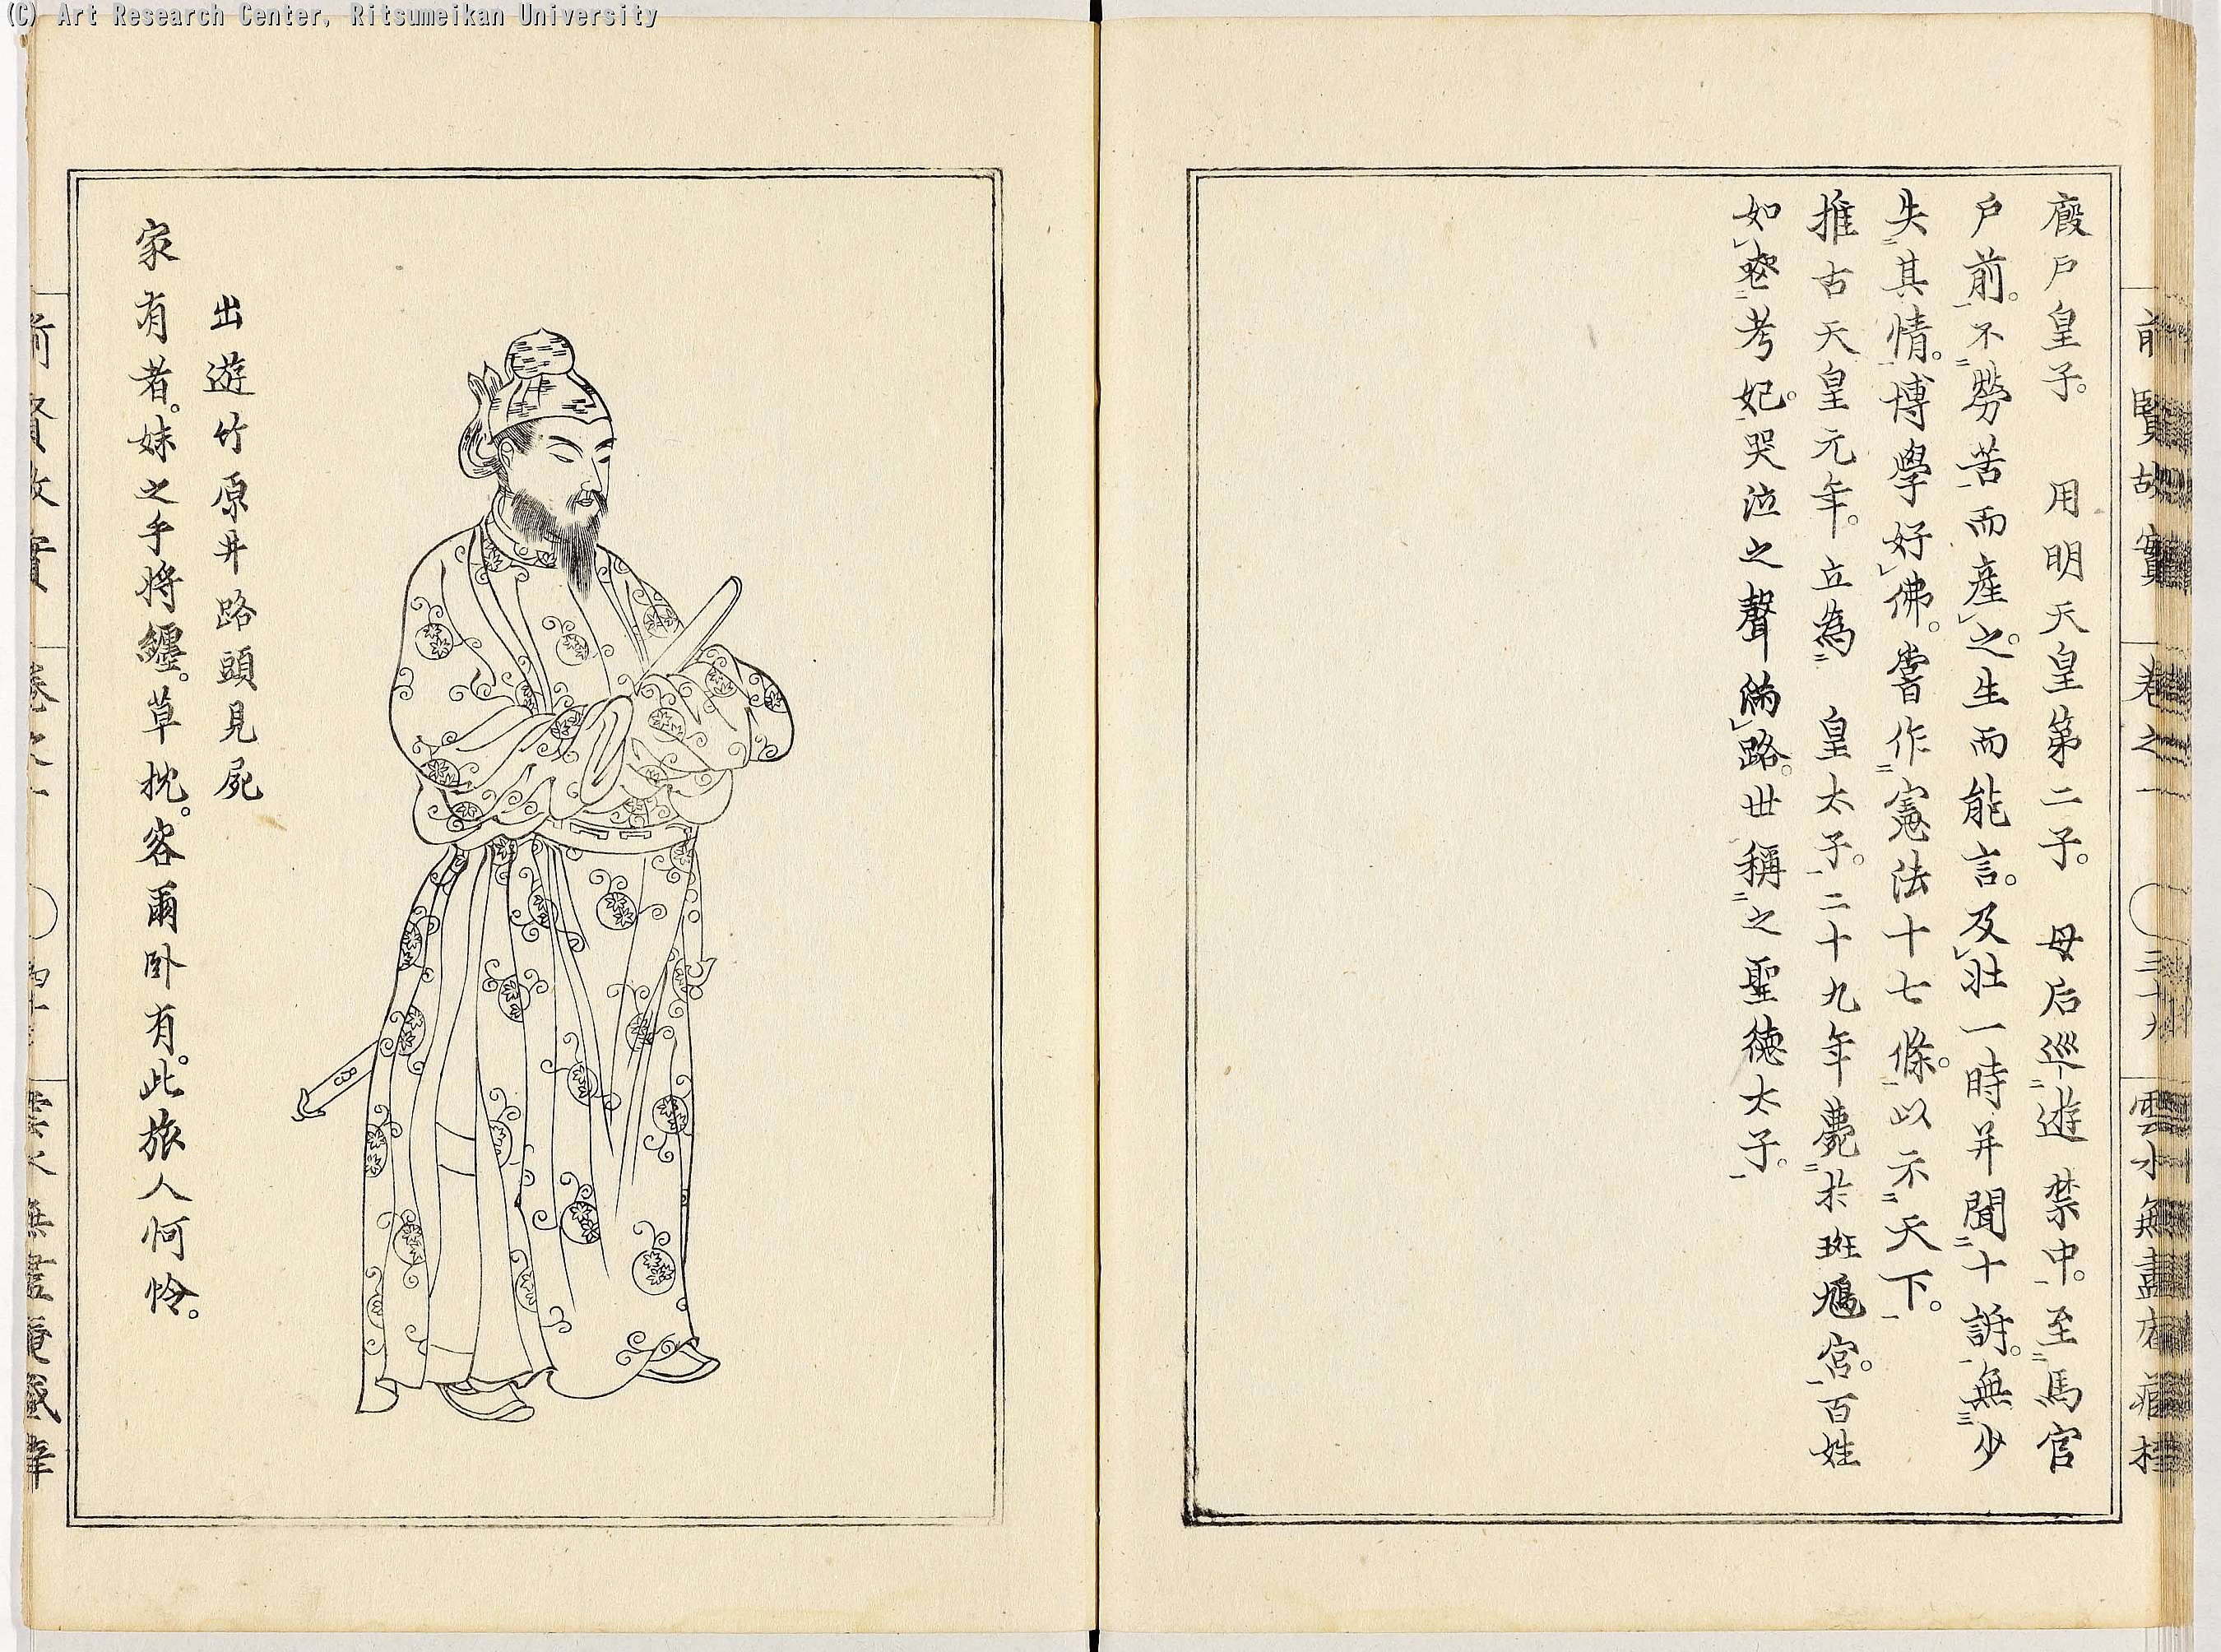 (C) Art Research Center, Ritsumeikan University
前賢故實 卷之一 三十九 雲水無盡庵藏梓
廄戶皇子。 用明天皇第二子。 母后巡遊禁中。至馬官
戶前。不勞苦而產之。生而能言。及壯一時并聞十訴。無少
失其情。博學好佛。嘗作憲法十七條。以示天下。
推古天皇元年。立為 皇太子。二十九年薨於斑鳩宮。百姓
如喪考妃。哭泣之聲滿路。世稱之聖德太子。
出遊竹原井路頭見死
家有者。妹之手將纏。草枕。客爾臥有。此旅人𪫧怜。
前賢故實 卷之一